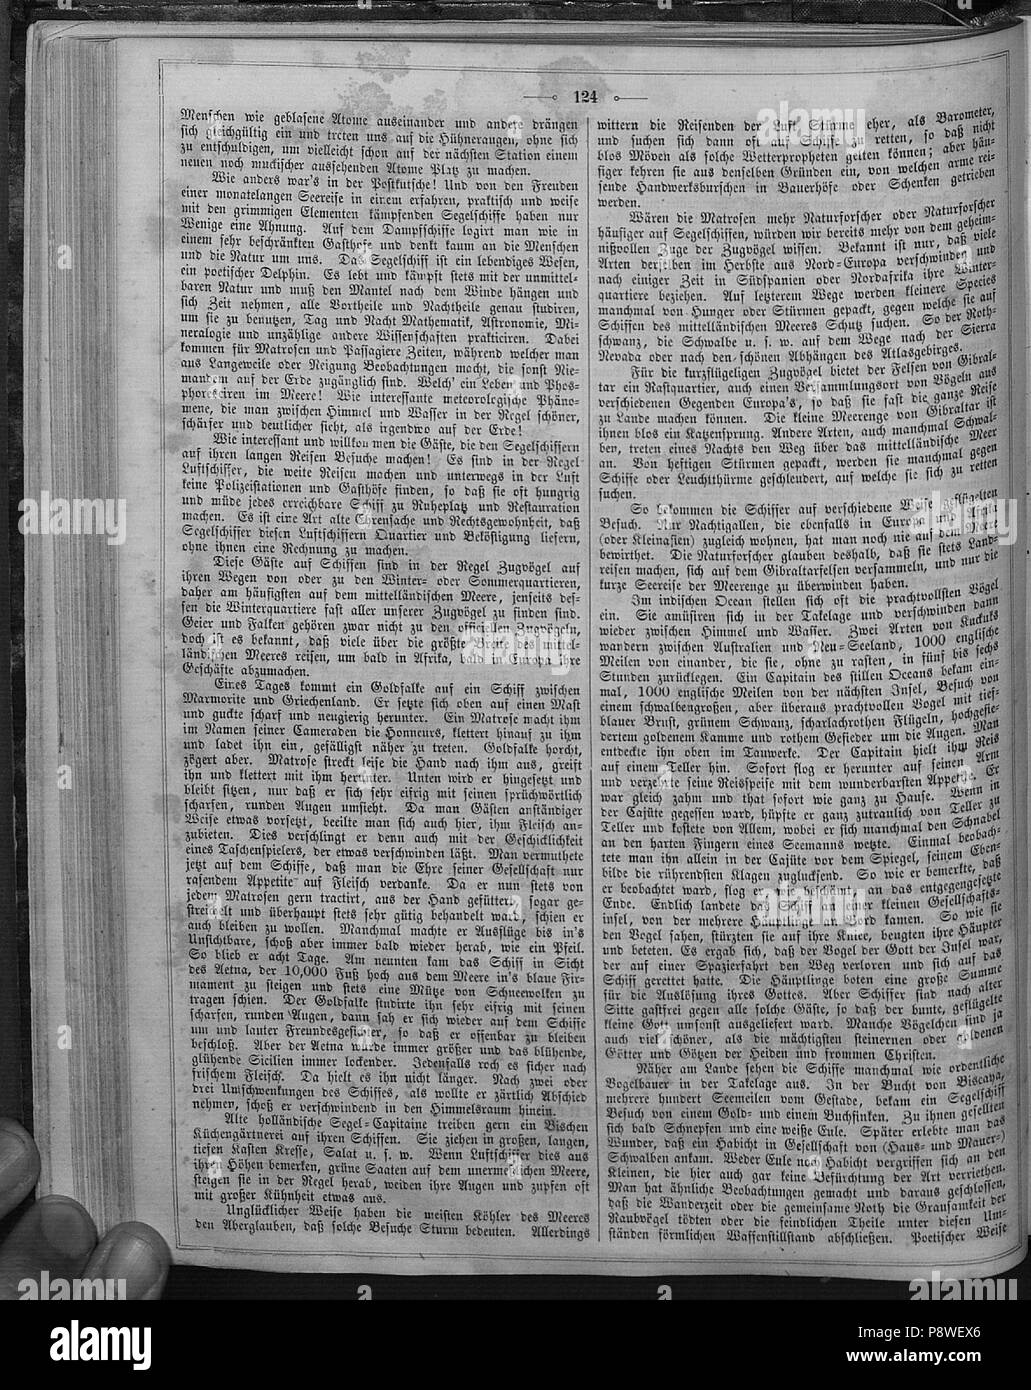 124
Menschen wie geblasene Atome auseinander und andere drängen
sich gleichgültig ein und treten uns auf die Hühneraugen, ohne sich
zu entschuldigen, um vielleicht schon auf der nächsten Station einem
neuen noch muckischer aussehenden Atome Platz zu machen.
Wie anders war's in der Postkutsche! Und von den Freuden
einer monatelangen Seereise in einem erfahren, praktisch und weise
mit den grimmigen Elementen kämpfenden Segelschiffe haben nur
Wenige eine Ahnung. Auf dem Dampfschiffe logirt man wie in
einem sehr beschränkten Gasthofe und denkt kaum an die Menschen
und die Natur um uns. Das Segelschiff ist ein lebendiges Wesen,
ein poetischer Delphin. Es lebt und kämpft stets mit der unmittel-
baren Natur und muß den Mantel nach dem Winde hängen und
sich Zeit nehmen, alle Vortheile und Nachtheile genau studiren,
um sie zu benutzen, Tag und Nacht Mathematik, Astronomie, Mi-
neralogie und unzählige andere Wissenschaften prakticiren. Dabei
kommen für Matrosen und Passagiere Zeiten, während welcher man
aus Langeweile oder Neigung Beobachtungen macht, die sonst Nie-
mandem auf der Erde zugänglich sind. Welch' ein Leben und Phos-
phoresciren im Meere! Wie interessante meteorologische Phäno-
mene, die man zwischen Himmel und Wasser in der Regel schöner,
schärfer und deutlicher sieht, als irgendwo auf der Erde!
Wie interessant und willkommen die Gäste, die den Segelschiffern
auf ihren langen Reisen Besuche machen! Es sind in der Regel
Luftschiffer, die weite Reisen machen und unterwegs in der Luft
keine Polizeistationen und Gasthöfe finden, so daß sie oft hungrig
und müde jedes erreichbare Schiff zu Ruheplatz und Restauration
machen. Es ist eine Art alte Ehrensache und Rechtsgewohnheit, daß
Segelschiffer diesen Luftschiffern Quartier und Beköstigung liefern,
ohne ihnen eine Rechnung zu machen.
Diese Gäste auf Schiffen sind in der Regel Zugvögel auf
ihren Wegen von oder zu den Winter- oder Sommerquartieren,
daher am häufigsten auf dem mittelländischen Meere, jenseits des-
sen die Winterquartiere fast aller unserer Zugvögel zu finden sind.
Geier und Falken gehören zwar nicht zu den officiellen Zugvögeln,
doch ist es bekannt, daß viele über die größte Breite des mittel-
ländischen Meeres reisen, um bald in Afrika, bald in Europa ihre
Geschäfte abzumachen.
Eines Tages kommt ein Goldfalke auf ein Schiff zwischen
Marmorite und Griechenland. Er setzte sich oben auf einen Mast
und guckte scharf und neugierig herunter. Ein Matrose macht ihm
im Namen seiner Cameraden die Honneurs, klettert hinauf zu ihm
und ladet ihn ein, gefälligst näher zu treten. Goldfalke horcht,
zögert aber. Matrose streckt leise die Hand nach ihm aus, greift
ihn und klettert mit ihm herunter. Unten wird er hingesetzt und
bleibt sitzen, nur daß er sich sehr eifrig mit seinen sprüchwörtlich
scharfen, runden Augen umsieht. Da man Gästen anständiger
Weise etwas vorsetzt, beeilte man sich auch hier, ihm Fleisch an-
zubieten. Dies verschlingt er denn auch mit der Geschicklichkeit
eines Taschenspielers, der etwas verschwinden läßt. Man vermuthete
jetzt auf dem Schiffe, daß man die Ehre seiner Gesellschaft nur
rasendem Appetite auf Fleisch verdanke. Da er nun stets von
jedem Matrosen gern tractirt, aus der Hand gefüttert, sogar ge-
streichelt und überhaupt stets sehr gütig behandelt ward, schien er
auch bleiben zu wollen. Manchmal machte er Ausflüge bis in's
Unsichtbare, schoß aber immer bald wieder herab, wie ein Pfeil.
So blieb er acht Tage. Am neunten kam das Schiff in Sicht
des Aetna, der 10,000 Fuß hoch aus dem Meere in's blaue Fir-
mament zu steigen und stets eine Mütze von Schneewolken zu
tragen schien. Der Goldfalke studirte ihn sehr eifrig mit seinen
scharfen, runden Augen, dann sah er sich wieder auf dem Schiffe
um und lauter Freundesgesichter, so daß er offenbar zu bleiben
beschloß. Aber der Aetna wurde immer größer und das blühende,
glühende Sicilien immer lockender. Jedenfalls roch es sicher nach
frischem Fleisch. Da hielt es ihn nicht länger. Nach zwei oder
drei Umschwenkungen des Schiffes, als wollte er zärtlich Abschied
nehmen, schoß er verschwindend in den Himmelsraum hinein.
Alte holländische Segel-Capitaine treiben gern ein Bischen
Küchengärtnerei auf ihren Schiffen. Sie ziehen in großen, langen,
tiefen Kasten Kresse, Salat u. s. w. Wenn Luftschiffer dies aus
ihren Höhen bemerken, grüne Saaten auf dem unermeßlichen Meere,
steigen sie in der Regel herab, weiden ihre Augen und zupfen oft
mit großer Kühnheit etwas aus.
Unglücklicher Weise haben die meisten Köhler des Meeres
den Aberglauben, daß solche Besuche Sturm bedeuten. Allerdings
wittern die Reisenden der Luft Stürme eher, als Barometer,
und suchen sich dann oft auf Schiffe zu retten, so daß nicht
blos Möven als solche Wetterpropheten gelten können; aber häu-
figer kehren sie aus denselben Gründen ein, von welchen arme rei-
sende Handwerksburschen in Bauerhöfe oder Schenken getrieben
werden.
Wären die Matrosen mehr Naturforscher oder Naturforscher
häufiger auf Segelschiffen, würden wir bereits mehr von dem geheim-
nißvollen Zuge der Zugvögel wissen. Bekannt ist nur, daß viele
Arten derselben im Herbste aus Nord-Europa verschwinden und
nach einiger Zeit in Südspanien oder Nordafrika ihre Winter-
quartiere beziehen. Auf letzterem Wege werden kleinere Species
manchmal von Hunger oder Stürmen gepackt, gegen welche sie auf
Schiffen des mittelländischen Meeres Schutz suchen. So der Roth-
schwanz, die Schwalbe u. s. w. auf dem Wege nach der Sierra
Nevada oder nach den schönen Abhängen des Atlasgebirges.
Für die kurzflügeligen Zugvögel bietet der Felsen von Gibral-
tar ein Rastquartier, auch einen Versammlungsort von Vögeln aus
verschiedenen Gegenden Europa's, so daß sie fast die ganze Reise
zu Lande machen können. Die kleine Meerenge von Gibraltar ist
ihnen blos ein Katzensprung. Andere Arten, auch manchmal Schwal-
ben, treten eines Nachts den Weg über das mittelländische Meer
an. Von heftigen Stürmen gepackt, werden sie manchmal gegen
Schiffe oder Leuchtthürme geschleudert, auf welche sie sich zu retten
suchen.
So bekommen die Schiffer auf verschiedene Weise geflügelten
Besuch. Nur Nachtigallen, die ebenfalls in Europa und Afrika
(oder Kleinasien) zugleich wohnen, hat man noch nie auf dem Meere
bewirthet. Die Naturforscher glauben deshalb, daß sie stets Land-
reisen machen, sich auf dem Gibraltarfelsen versammeln, und nur die
kurze Seereise der Meerenge zu überwinden haben.
Im indischen Ocean stellen sich oft die prachtvollsten Vögel
ein. Sie amüsiren sich in der Takelage und verschwinden dann
wieder zwischen Himmel und Wasser. Zwei Arten von Kuckuks
wandern zwischen Australien und Neu-Seeland, 1000 englische
Meilen von einander, die sie, ohne zu rasten, in fünf bis sechs
Stunden zurücklegen. Ein Capitain des stillen Oceans bekam ein-
mal, 1000 englische Meilen von der nächsten Insel, Besuch von
einem schwalbengroßen, aber überaus prachtvollen Vogel mit tief-
blauer Brust, grünem Schwanz, scharlachrothen Flügeln, hochgefie-
dertem goldenem Kamme und rothem Gefieder um die Augen. Man
entdeckte ihn oben im Tauwerke. Der Capitain hielt ihm Reis
auf einem Teller hin. Sofort flog er herunter auf seinen Arm
und verzehrte seine Reisspeise mit dem wunderbarsten Appetite. Er
war gleich zahm und that sofort wie ganz zu Hause. Wenn in
der Cajüte gegessen ward, hüpfte er ganz zutraulich von Teller zu
Teller und kostete von Allem, wobei er sich manchmal den Schnabel
an den harten Fingern eines Seemanns wetzte. Einmal beobach-
tete man ihn allein in der Cajüte vor dem Spiegel, seinem Eben-
bilde die rührendsten Klagen zuglucksend. So wie er bemerkte, daß
er beobachtet ward, flog er, wie beschämt, an das entgegengesetzte
Ende. Endlich landete das Schiff an einer kleinen Gesellschafts-
insel, von der mehrere Häuptlinge an Bord kamen. So wie sie
den Vogel sahen, stürzten sie auf ihre Kniee, beugten ihre Häupter
und beteten. Es ergab sich, daß der Vogel der Gott der Insel war,
der auf einer Spazierfahrt den Weg verloren und sich auf das
Schiff gerettet hatte. Die Häuptlinge boten eine große Summe
für die Auslösung ihres Gottes. Aber Schiffer sind nach alter
Sitte gastfrei gegen alle solche Gäste, so daß der bunte, geflügelte
kleine Gott umsonst ausgeliefert ward. Manche Vögelchen sind ja
auch viel schöner, als die mächtigsten steinernen oder goldenen
Götter und Götzen der Heiden und frommen Christen.
Näher am Lande sehen die Schiffe manchmal wie ordentliche
Vogelbauer in der Takelage aus. In der Bucht von Biscaya,
mehrere hundert Seemeilen vom Gestade, bekam ein Segelschiff
Besuch von einem Gold- und einem Buchfinken. Zu ihnen gesellten
sich bald Schnepfen und eine weiße Eule. Später erlebte man das
Wunder, daß ein Habicht in Gesellschaft von (Haus- und Mauer-)
Schwalben ankam. Weder Eule noch Habicht vergriffen sich an den
Kleinen, die hier auch gar keine Befürchtung der Art verriethen.
Man hat ähnliche Beobachtungen gemacht und daraus geschlossen,
daß die Wanderzeit oder die gemeinsame Noth die Grausamkeit der
Raubvögel tödten oder die feindlichen Theile unter diesen Um-
ständen förmlichen Waffenstillstand abschließen. Poetischer Weise
alamy
Image ID: P8WEX6
www.alamy.com